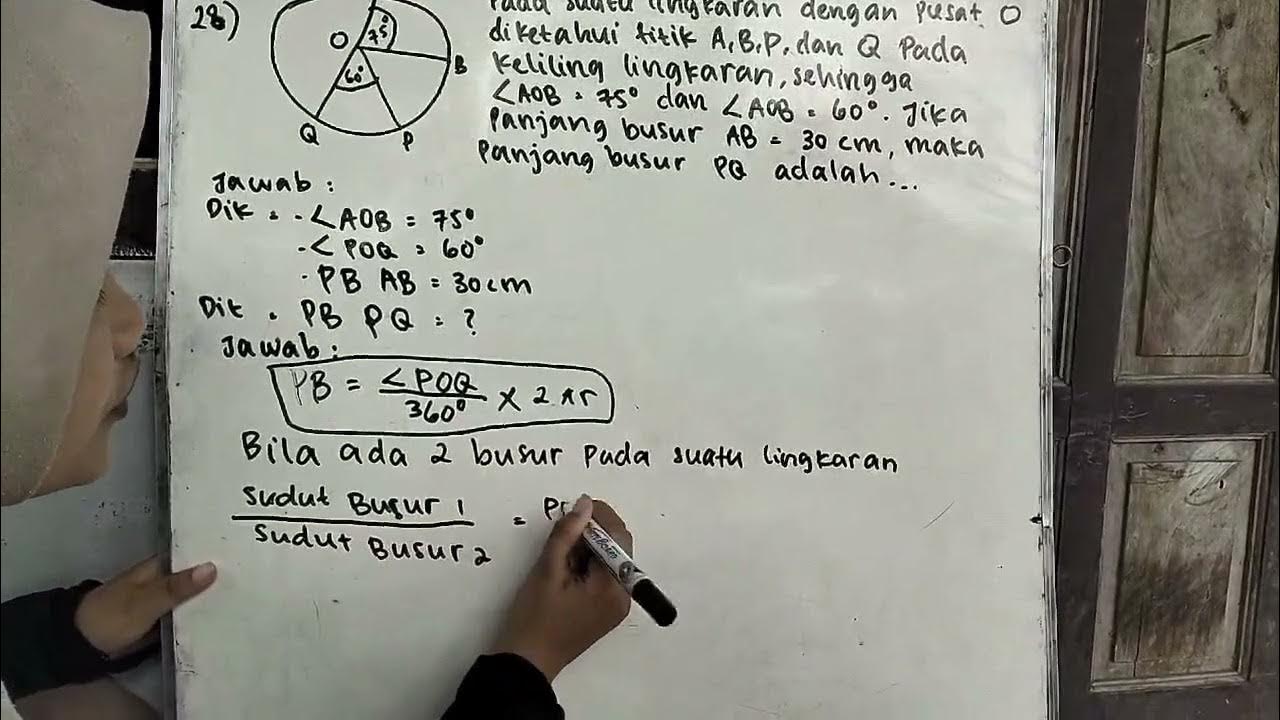 28)
75°
O
60°
B
Q
P
Pada suatu lingkaran dengan pusat O
diketahui titik A, B, P, dan Q Pada
Keliling lingkaran, sehingga
∠AOB = 75° dan ∠AOB = 60°. Jika
Panjang busur AB = 30 cm, maka
Panjang busur PQ adalah...
Jawab :
Dik : - ∠AOB = 75°
- ∠POQ = 60°
- PB AB = 30 cm
Dit : PB PQ = ?
Jawab :
PB = ∠POQ / 360° × 2 πr
Bila ada 2 busur Pada suatu lingkaran
Sudut Busur 1
= 
Sudut Busur 2